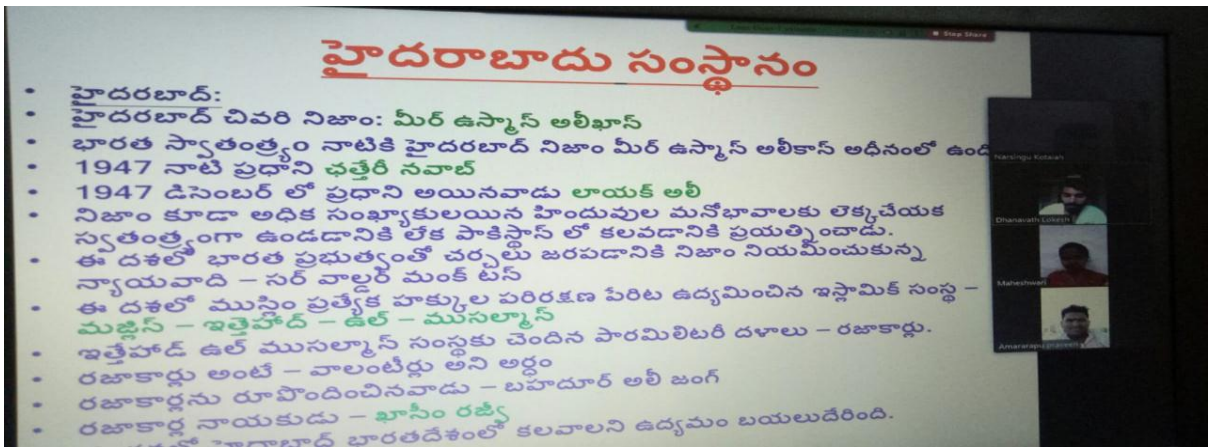 Stop Share
హైదరాబాదు సంస్థానం
• హైదరబాద్:
• హైదరబాద్ చివరి నిజాం: మీర్ ఉస్మాన్ అలీఖాన్
• భారత స్వాతంత్ర్యం నాటికి హైదరబాద్ నిజాం మీర్ ఉస్మాన్ అలీకాన్ అధీనంలో ఉంది
• 1947 నాటి ప్రధాని ఛత్తేరీ నవాబ్
• 1947 డిసెంబర్ లో ప్రధాని అయినవాడు లాయక్ అలీ
• నిజాం కూడా అధిక సంఖ్యాకులయిన హిందువుల మనోభావాలకు లెక్కచేయక
స్వతంత్ర్యంగా ఉండడానికి లేక పాకిస్థాన్ లో కలవడానికి ప్రయత్నించాడు.
• ఈ దశలో భారత ప్రభుత్వంతో చర్చలు జరపడానికి నిజాం నియమించుకున్న
న్యాయవాది – సర్ వాల్టర్ మంక్ టన్
• ఈ దశలో ముస్లిం ప్రత్యేక హక్కుల పరిరక్షణ పేరిట ఉద్యమించిన ఇస్లామిక్ సంస్థ –
మజ్లిస్ – ఇత్తెహాద్ – ఉల్ – ముసల్మాన్
• ఇత్తేహాద్ ఉల్ ముసల్మాన్ సంస్థకు చెందిన పారమిలిటరీ దళాలు – రజాకార్లు.
• రజాకార్లు అంటే – వాలంటీర్లు అని అర్థం
• రజాకార్లను రూపొందించినవాడు – బహదూర్ అలీ జంగ్
• రజాకార్ల నాయకుడు – ఖాసీం రజ్వీ
హైదరాబాద్ భారతదేశంలో కలవాలని ఉద్యమం బయలుదేరింది.
Narsingu Kotaiah
Dhanavath Lokesh
Maheshwari
Amararapu praveen